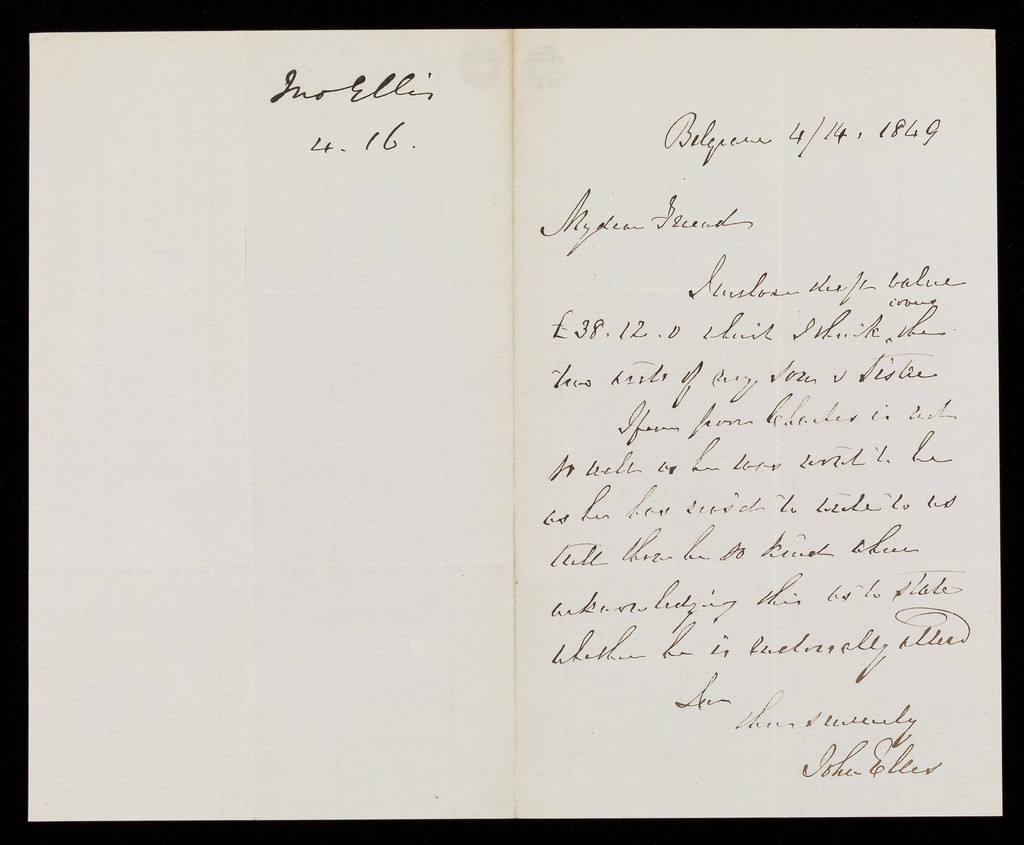 Jno Ellis
4. 16.
Belgrave 4/14. 1849
My dear Friend
I enclose draft value
£38.12.0 which I think covers the
two visits of my son & Sister
I fear poor Charles is not
so well as he was wont to be
as he has ceas'd to write to us
Wilt thou be so kind when
acknowledging this as to state
whether he is materially alter'd
I am
thine sincerely
John Ellis